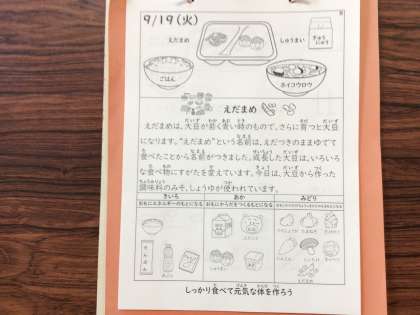 9/19(火)
えだまめ
しゅうまい
ぎゅうにゅう
ごはん
ホイコウロウ
えだまめ
えだまめは、大豆が若く青い時のもので、さらに育つと大豆
になります。“えだまめ”という名前は、えだつきのままゆでて
食べたことから名前がつきました。成長した大豆は、いろいろ
な食べ物にすがたを変えています。今日は、大豆から作った
調味料のみそ、しょうゆが使われています。
きいろ あか みどり
おもにエネルギーのもとになる おもにからだをつくるもとになる
しっかり食べて元気な体を作ろう